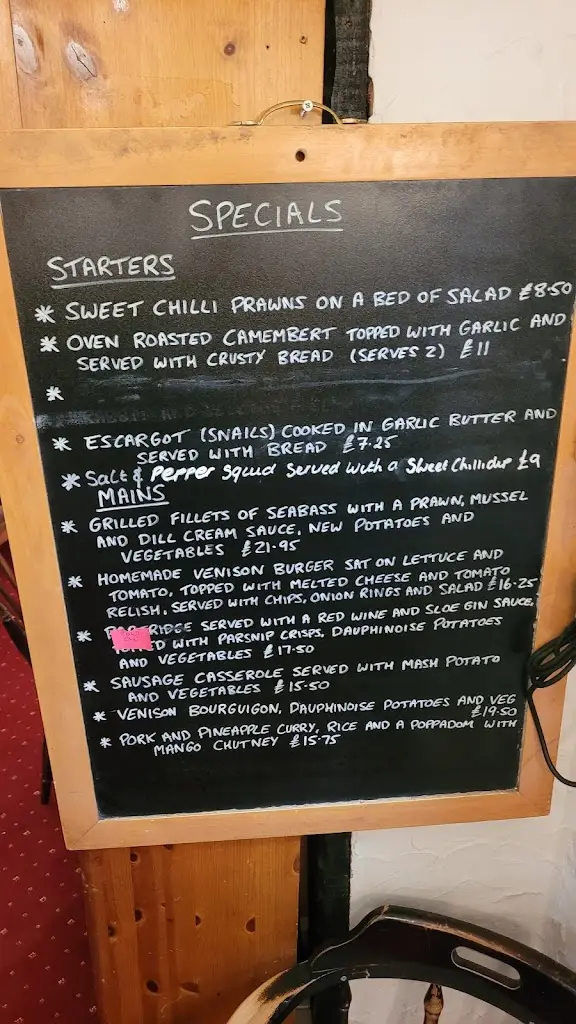 SPECIALS
STARTERS
* SWEET CHILLI PRAWNS ON A BED OF SALAD £8.50
* OVEN ROASTED CAMEMBERT TOPPED WITH GARLIC AND
SERVED WITH CRUSTY BREAD (SERVES 2) £11
*
* ESCARGOT (SNAILS) COOKED IN GARLIC BUTTER AND
SERVED WITH BREAD £7.25
* Salt & Pepper Squid Served with a Sweet Chilli dip £9
MAINS
* GRILLED FILLETS OF SEABASS WITH A PRAWN, MUSSEL
AND DILL CREAM SAUCE, NEW POTATOES AND
VEGETABLES £21.95
* HOMEMADE VENISON BURGER SAT ON LETTUCE AND
TOMATO, TOPPED WITH MELTED CHEESE AND TOMATO
RELISH, SERVED WITH CHIPS, ONION RINGS AND SALAD £16.25
* PARTRIDGE SERVED WITH A RED WINE AND SLOE GIN SAUCE,
WITH PARSNIP CRISPS, DAUPHINOISE POTATOES
AND VEGETABLES £17.50
* SAUSAGE CASSEROLE SERVED WITH MASH POTATO
AND VEGETABLES £15.50
* VENISON BOURGUIGON, DAUPHINOISE POTATOES AND VEG
£19.50
* PORK AND PINEAPPLE CURRY, RICE AND A POPPADOM WITH
MANGO CHUTNEY £15.75